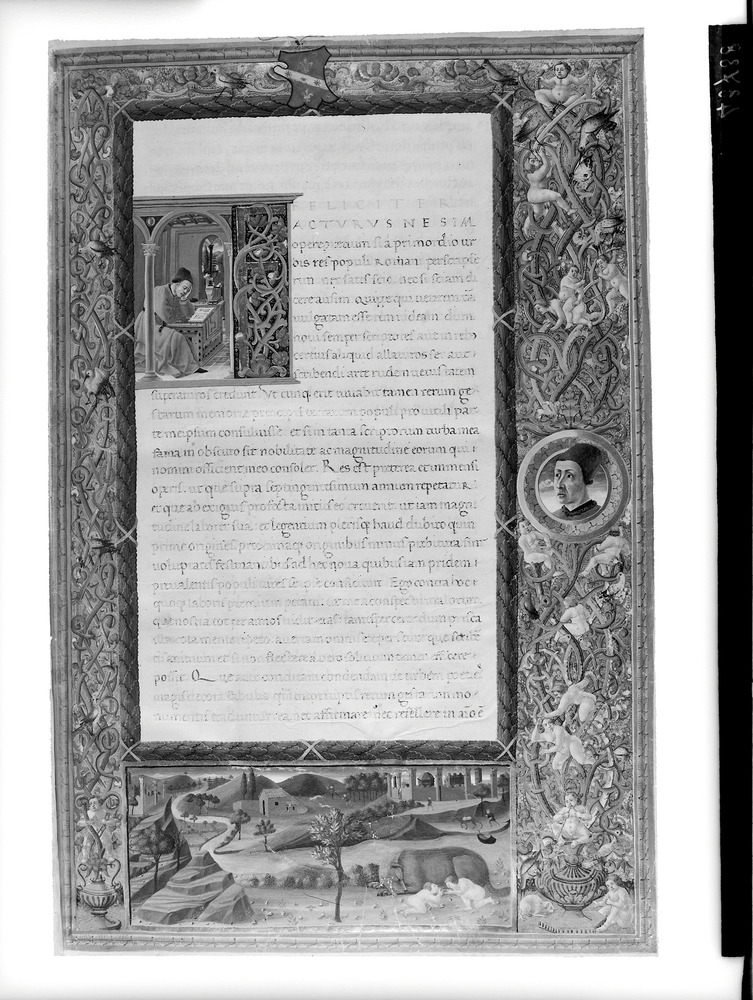 FELICITER
ACTURUSNE SIM
opere pretium si a primordio ur
bis res populi Romani perscripse
rim nec satis scio nec si sciam di
cere ausim Quippe qui veterem tū
vulgatam esse rem videam dum
novi semper scriptores aut in rebꝰ
certius aliquid allaturos se: aut
scribendi arte rudem vetustatem
superaturos credunt. Ut cunq; erit iuvabit tamen rerum ge
starum memorie principis terrarum populi pro virili par
te me ipsum consuluisse et si in tanta scriptorum turba mea
fama in obscuro sit nobilitate ac magnitudine eorum qui
nomini officient meo consoler. Res est preterea et immensi
operis. ut que supra septingentesimum annum repetatur
et que ab exiguis profecta initiis eo creverit ut iam magni
tudine laboret sua: et legentium plerisq; haud dubito quin
prime origines proximaq; originibus minus prebitura sint
voluptatis festinantibus ad hec nova quibus iam pridem
prevalentis populi vires se ipse conficiunt. Ego contra hoc
quoq; laboris premium petam. ut me a conspectu malorum
que nostra tot per annos vidit etas tantisper certe dum prisca
illa tota mente repeto. avertam omnis expers cure que scribē
tis animum et si non flectere a vero solicitum tamen efficere
possit. Que ante conditam condendamve urbem poetic̄
magis decora fabulis q̄ incorruptis rerum gestarum mo
numentis traduntur ea nec affirmare nec refellere in aīo ē